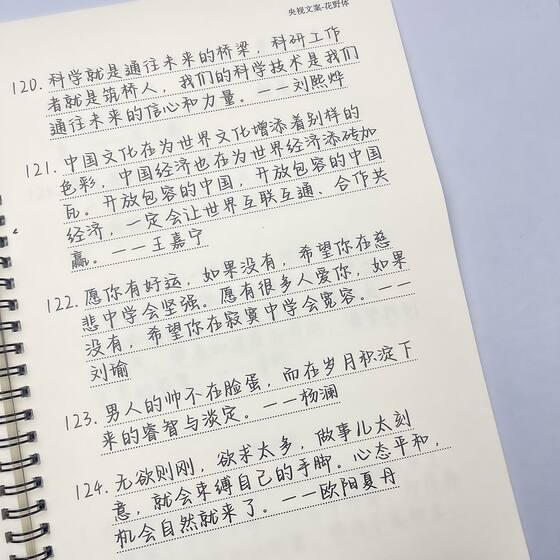 央视文案-花野体
120. 科学就是通往未来的桥梁，科研工作
者就是筑桥人，我们的科学技术是我们
通往未来的信心和力量。——刘熙烨
121. 中国文化在为世界文化增添着别样的
色彩，中国经济也在为世界经济添砖加
瓦。开放包容的中国，开放包容的中国
经济，一定会让世界互联互通、合作共
赢。——王嘉宁
122. 愿你有好运，如果没有，希望你在慈
悲中学会坚强。愿有很多人爱你，如果
没有，希望你在寂寞中学会宽容。——
刘瑜
123. 男人的帅不在脸蛋，而在岁月积淀下
来的睿智与淡定。——杨澜
124. 无欲则刚，欲求太多，做事儿太刻
意，就会束缚自己的手脚。心态平和，
机会自然就来了。——欧阳夏丹